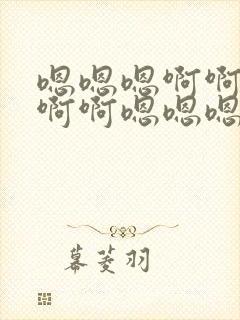 嗯嗯嗯啊啊
啊啊嗯嗯嗯
幕菱羽